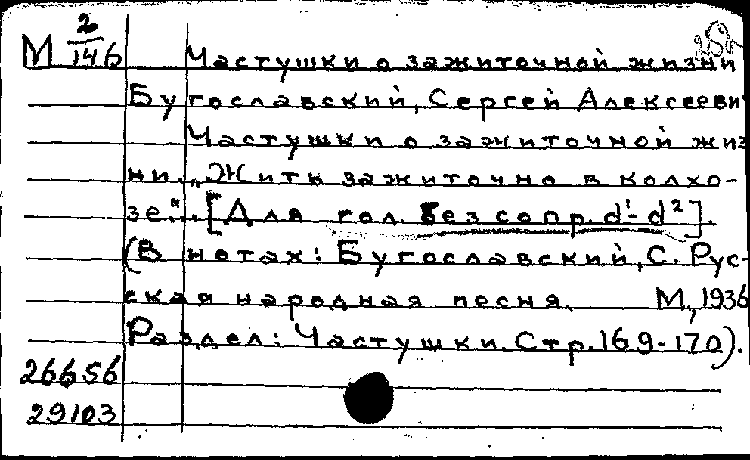 М 2/146 Частушки о зажиточной жизни
Бугославский, Сергей Алексеевич
Частушки о зажиточной жиз
ни. „Жить зажиточно в колхо-
зе"... [Для гол. без сопр. d¹-d²].
(В нотах: Бугославский, С. Рус-
ская народная песня. М., 1936
Раздел: Частушки. Стр. 169-170).
26656
29103